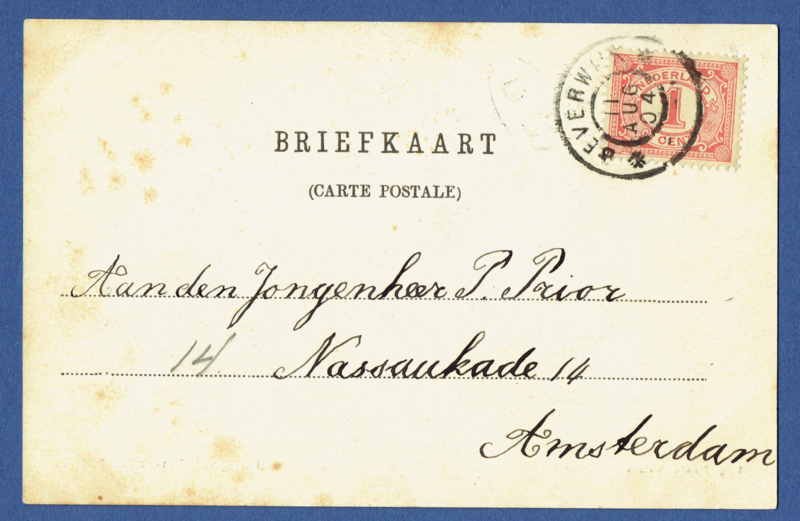 BRIEFKAART
(CARTE POSTALE)
NEDERLAND
1
CENT
11
AUG
04
Aan den Jongenheer P. Prior
14 Nassaukade 14
Amsterdam